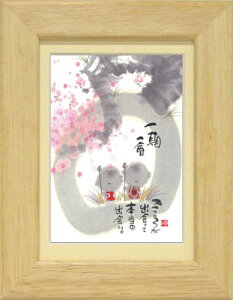 一期
一会
こころが
出会って
本当の
出会い